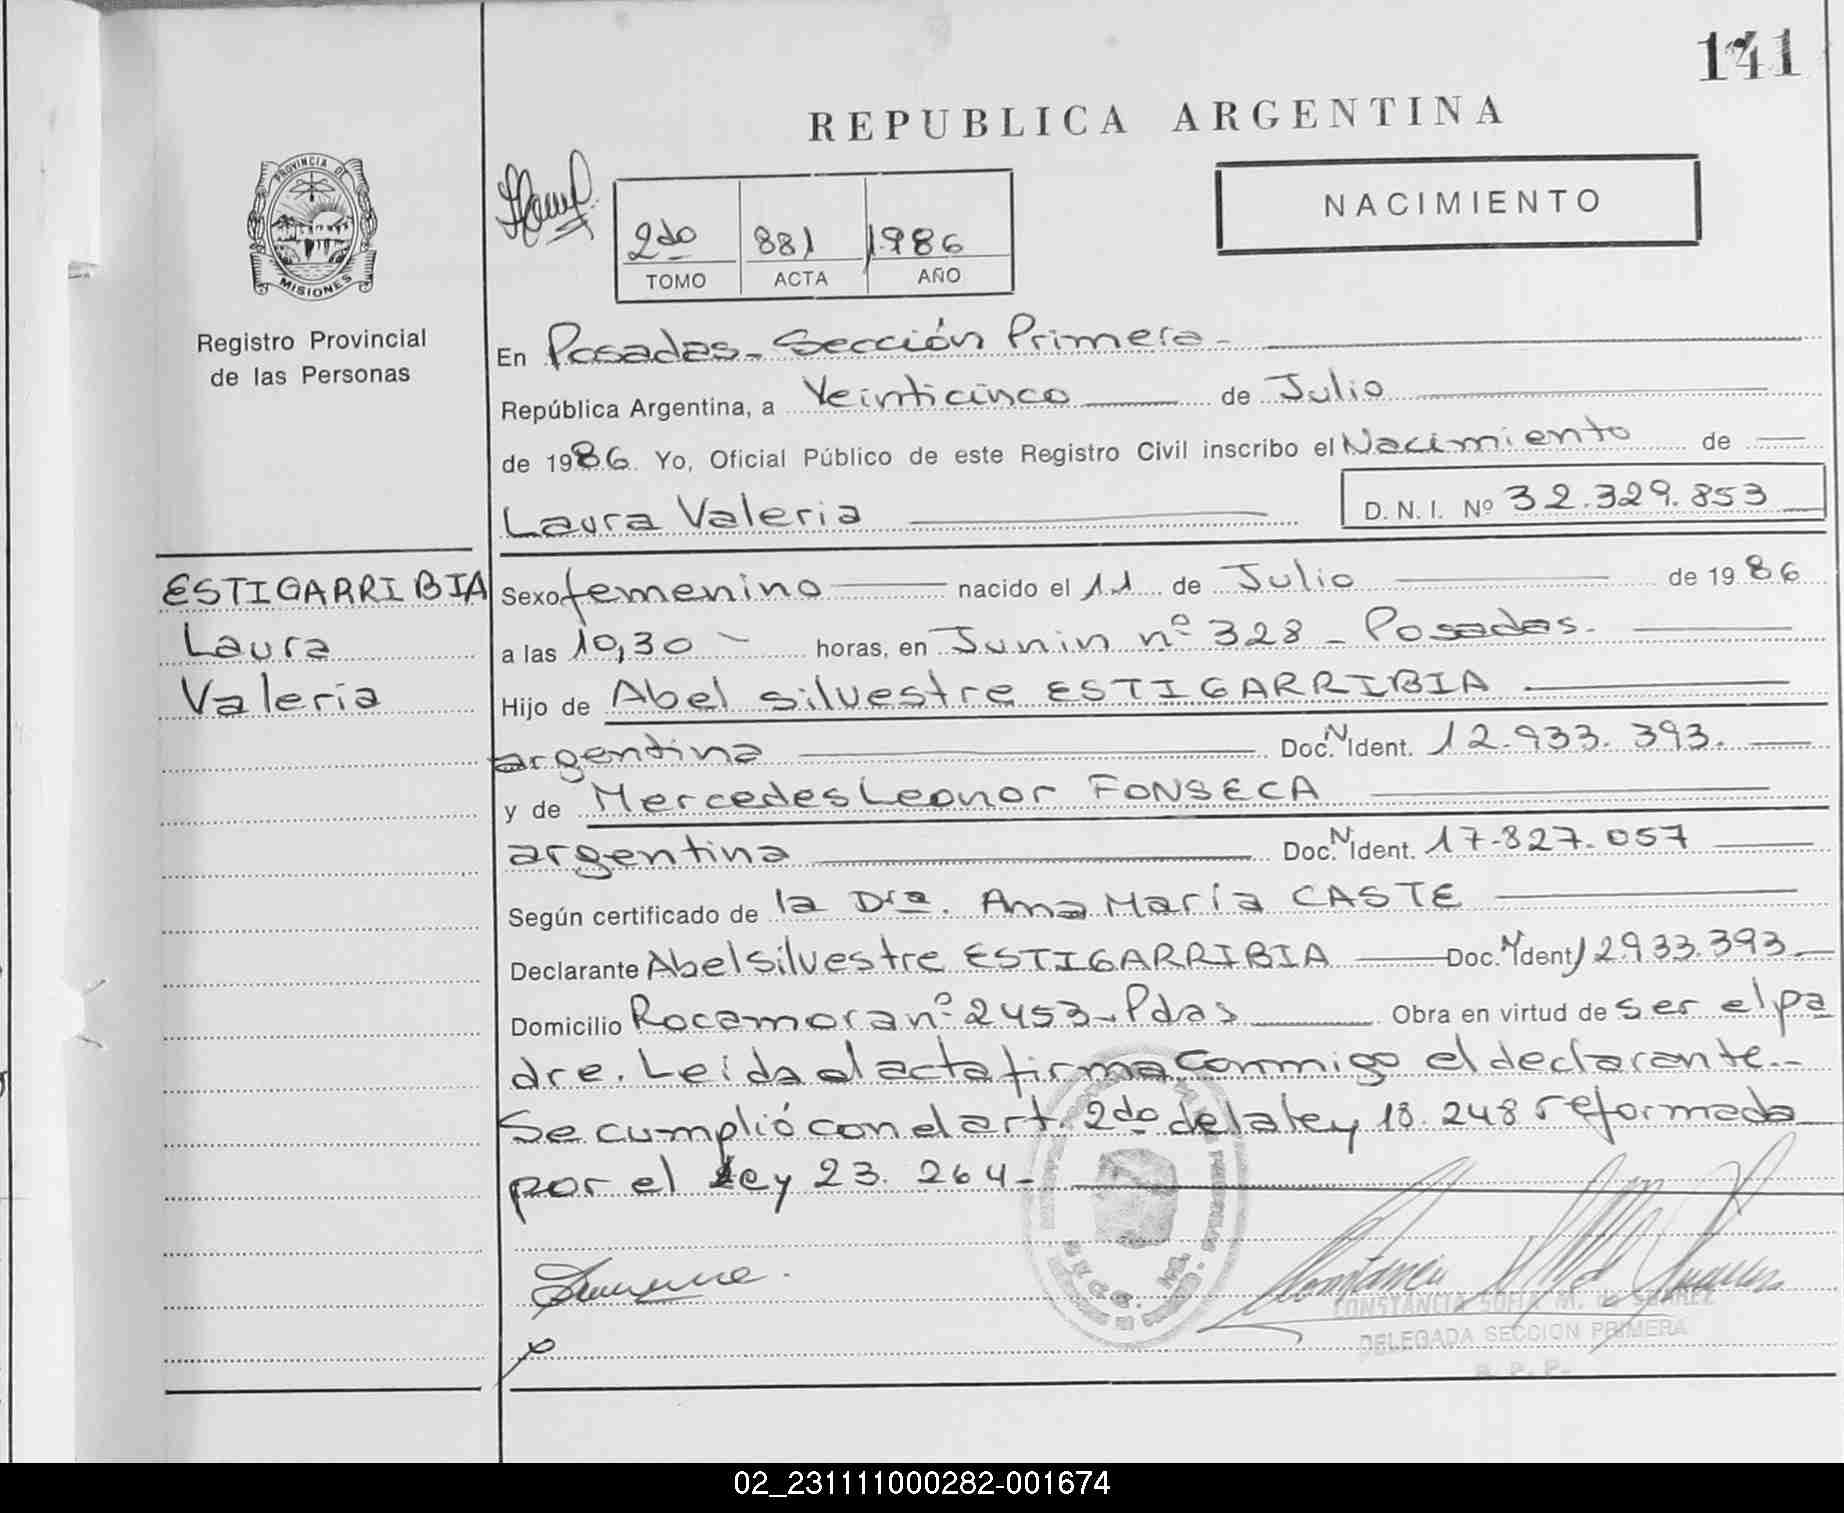 141
REPUBLICA ARGENTINA
NACIMIENTO
2do 881 1986
TOMO ACTA AÑO
PROVINCIA DE
MISIONES
Registro Provincial
de las Personas
En Posadas - Sección Primera -
República Argentina, a Veinticinco de Julio
de 1986. Yo, Oficial Público de este Registro Civil inscribo el Nacimiento de
Laura Valeria D.N.I. Nº 32.329.853
ESTIGARRIBIA
Laura
Valeria
Sexo femenino nacido el 11 de Julio de 1986
a las 10,30 horas, en Junin nº 328 - Posadas.
Hijo de Abel Silvestre ESTIGARRIBIA
argentina Doc. N Ident. 12.933.393.
y de Mercedes Leonor FONSECA
argentina Doc. N Ident. 17.827.057
Según certificado de la Dra. Ana María CASTE
Declarante Abel Silvestre ESTIGARRIBIA Doc. N Ident 12933.393
Domicilio Rocamora nº 2453 - Pdas Obra en virtud de ser el pa
dre. Leida el acta firma conmigo el declarante.-
Se cumplió con el art. 2do de la ley 18.248 reformada
por el ley 23.264-
CONSTANCIA SOFIA M. de SUAREZ
DELEGADA SECCION PRIMERA
R. P. P.
02_231111000282-001674